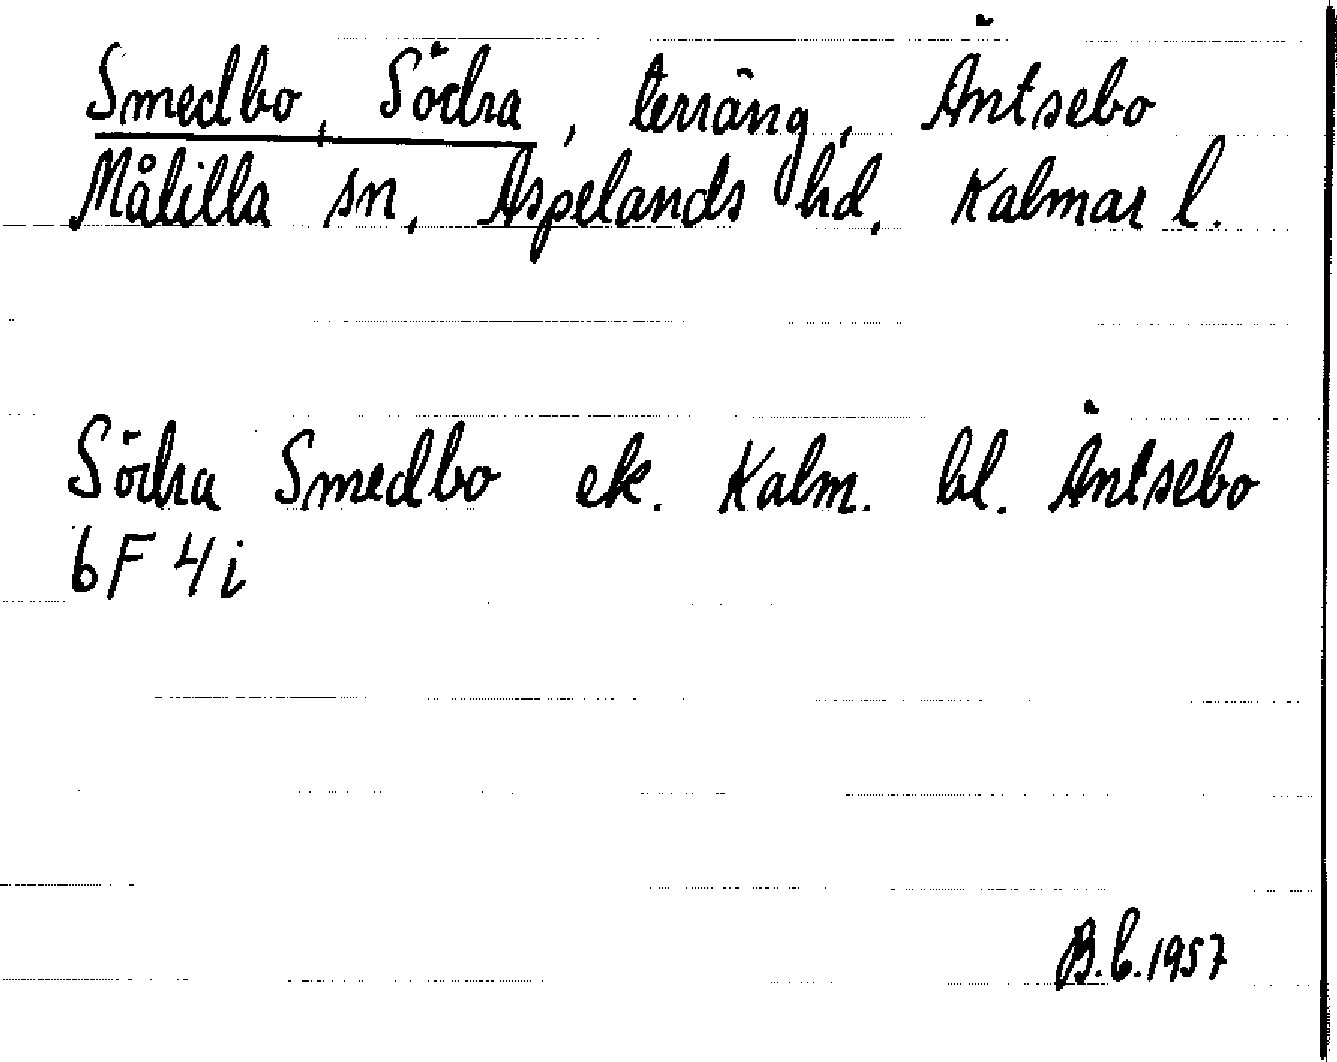 Smedbo, Södra, terräng, Äntsebo
Målilla sn, Aspelands hd, Kalmar l.
Södra Smedbo ek. Kalm. bl. Äntsebo
6F 4i
B.C. 1957